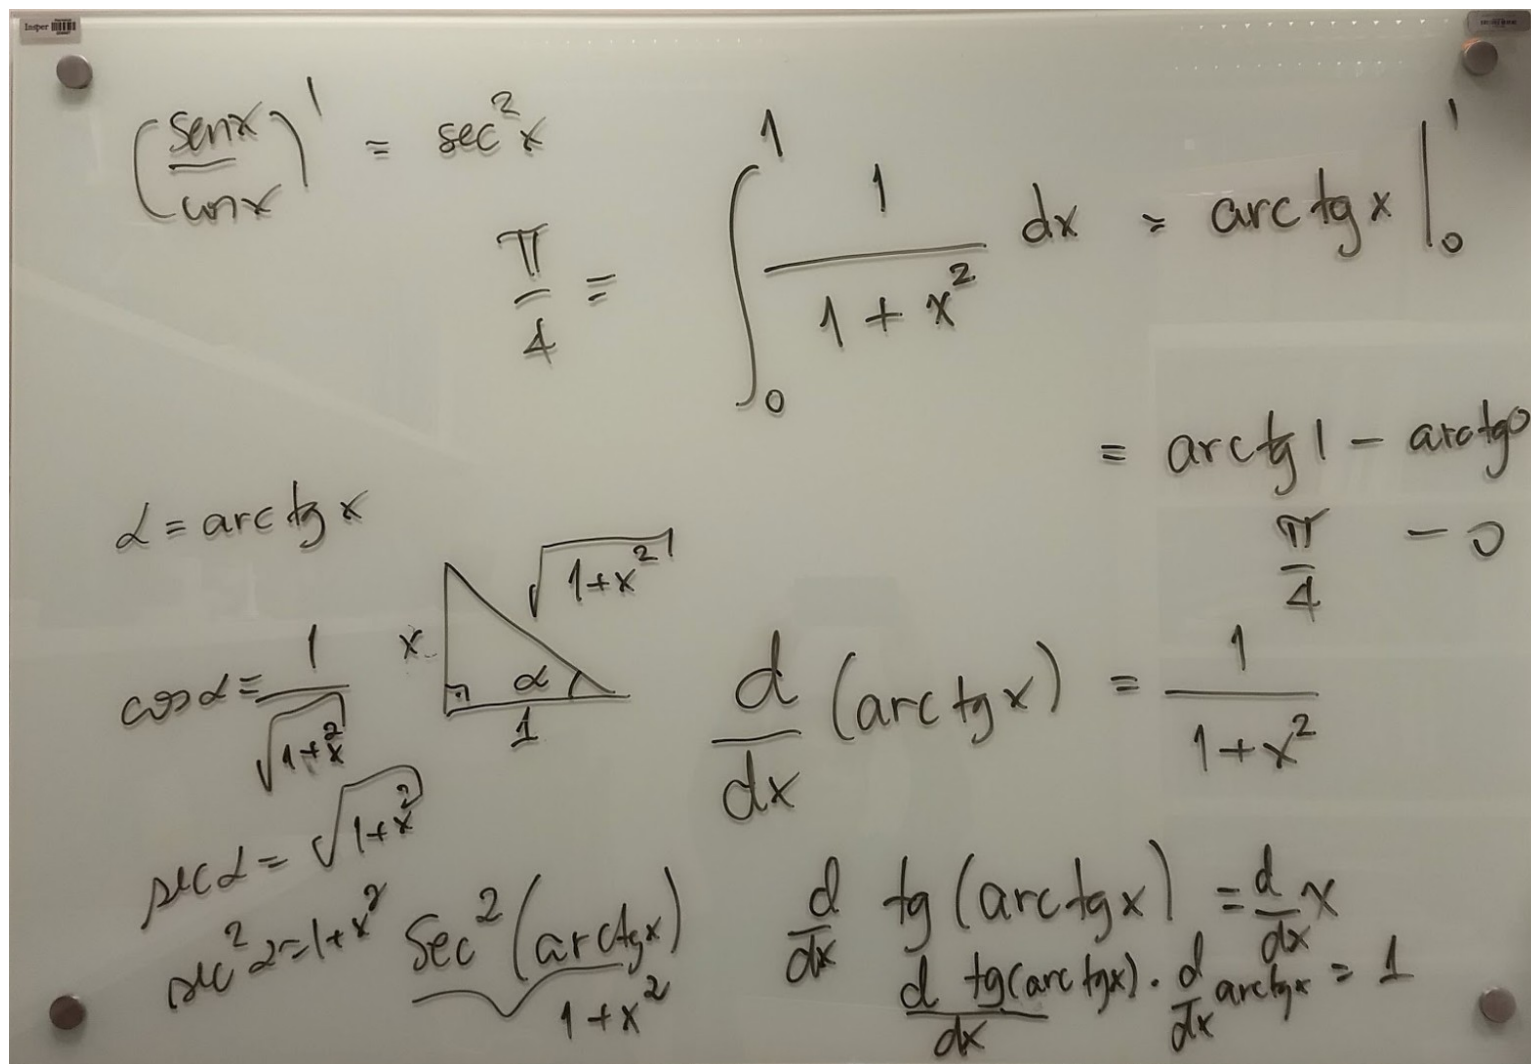 Insper
(senx/cosx)' = sec²x
π/4 = ∫₀¹ 1/(1+x²) dx = arc tg x |₀¹
= arctg 1 − arctg 0
π/4 − 0
α = arc tg x
x √(1+x²) α 1
cos α = 1/√(1+x²)
sec α = √(1+x²)
sec²α = 1+x²
sec²(arctgx)
1+x²
d/dx (arc tg x) = 1/(1+x²)
d/dx tg(arc tgx) = d/dx x
d tg(arc tgx)/dx · d/dx arctgx = 1